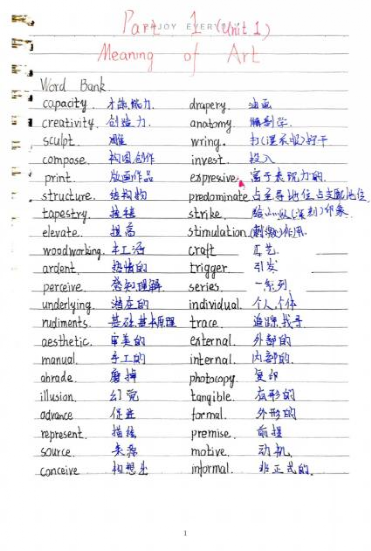 Part 1 (Unit 1)
Meaning of Art
Word Bank
capacity. 才能能力. drapery. 油画
creativity. 创造力. anatomy. 解剖学.
sculpt. 雕 wring. 拧干
compose. 构图创作 invest. 投入
print. 版画作品 expressive. 富于表现力的.
structure. 结构物 predominate 占主导地位,占支配地位
tapestry. 挂毯 strike. 给…以(深刻)印象.
elevate. 提高 stimulation (刺激)作用.
woodworking. 木工活 craft 工艺.
ardent. 热情的 trigger. 引发
perceive. 察知理解. series. 一系列
underlying. 潜在的 individual. 个人,个体
rudiments. 基础基本原理 trace. 追踪,找寻
aesthetic. 审美的 external. 外部的
manual. 手工的 internal. 内部的.
abrade. 磨掉 photocopy. 复印
illusion. 幻觉 tangible. 有形的
advance 促进 formal. 外形的
represent. 描绘 premise. 前提
source. 来源 motive. 动机
conceive 构想出 informal. 非正式的.
1